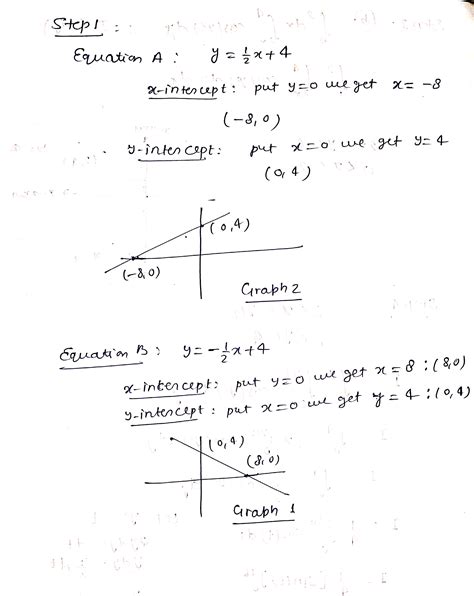 Step 1 :
Equation A : y = 1/2 x + 4
x-intercept : put y=0 we get x = -8
(-8, 0)
y-intercept : put x=0 we get y=4
(0, 4)
(0, 4)
(-8, 0)
Graph 2
Equation B : y = -1/2 x + 4
x-intercept : put y=0 we get x = 8 : (8,0)
y-intercept : put x=0 we get y = 4 : (0,4)
(0, 4)
(8, 0)
Graph 1